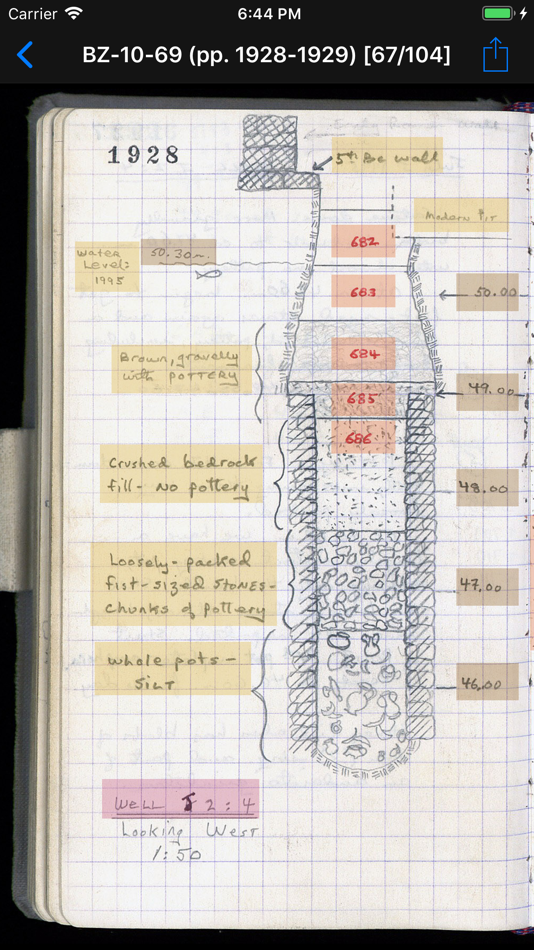 Carrier
6:44 PM
BZ-10-69 (pp. 1928-1929) [67/104]
1928
5th BC wall
Modern Pit
682
Water
Level:
1995
50.30m.
683
50.00
Brown, gravelly
with POTTERY
684
685
49.00
686
Crushed bedrock
fill- No pottery
48.00
Loosely-packed
fist-sized STONES-
chunks of pottery
47.00
whole pots-
SILT
46.00
WELL J 2:4
Looking West
1:50